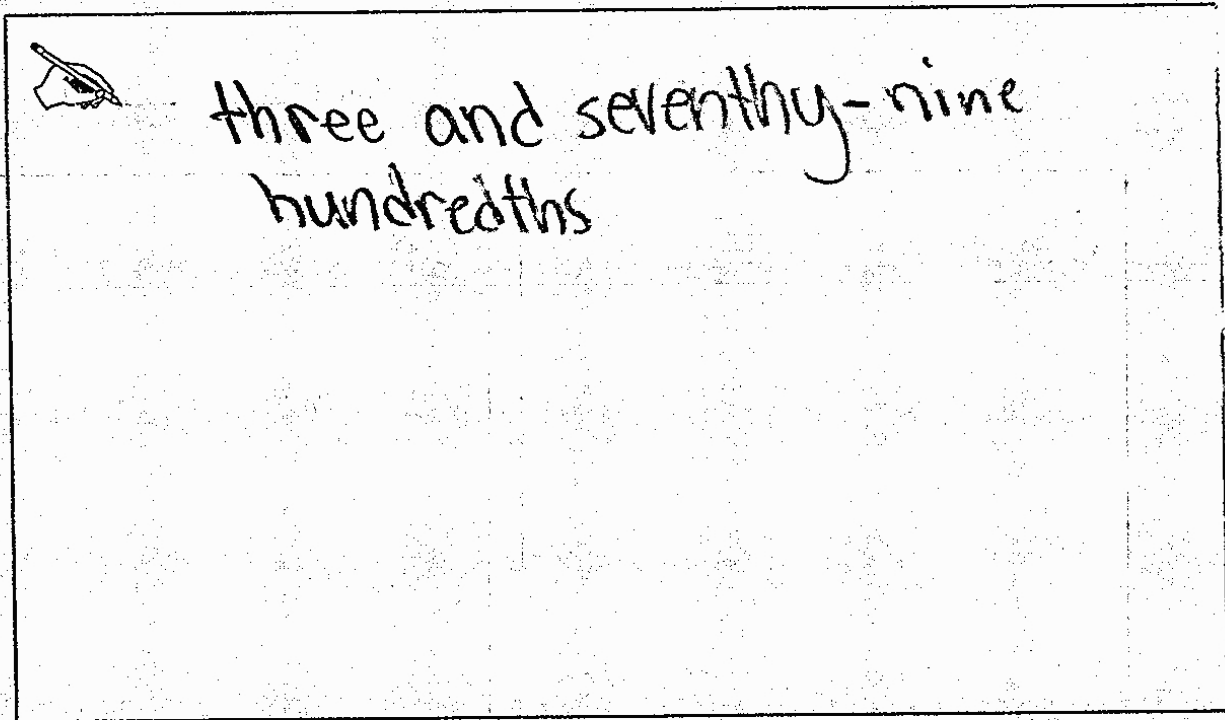 three and seventhy-nine
hundredths